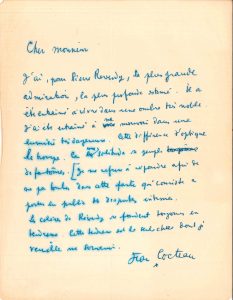 Cher monsieur
J'ai, pour Pierre Reverdy, la plus grande
admiration, la plus profonde estime. Il a
été entraîné à vivre dans une ombre très noble
J'ai été entraîné à me mouvoir dans une
lumière très dangereuse. Cette différence d'optique
le trompe. Sa solitude se peuple
de fantômes. Je me refuse à répondre afin de
ne pas tomber dans cette faute qui consiste à
porter en public les disputes intimes.
La colère de Reverdy se fondent toujours en
tendresse. Cette tendresse est la seule chose dont je
veuille me souvenir.
Jean Cocteau